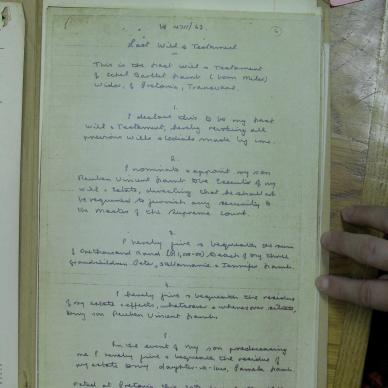 4711/63
Last Will & Testament
This is the Last Will & Testament
of Ethel Bartlet (born Miles)
Widow, of Pretoria, Transvaal.
1.
I declare this to be my Last
Will & Testament, hereby revoking all
previous wills & Codicils made by me.
2.
I nominate & appoint my son
Reuben Vincent to be Executor of my
will & Estate, directing that he shall not
be required to furnish any security to
the Master of the Supreme Court.
3.
I hereby give & bequeath the sum
of One thousand Rand (R1,000-00) to each of my three
grandchildren Peter, & Jennifer
4.
I hereby give & bequeath the residue
of my estate & effects, whatsoever & wheresoever situate
to my son Reuben Vincent
In the event of my son predeceasing
me I hereby give & bequeath the residue of
my estate to my daughter-in-law, Pamela
Dated at Pretoria this